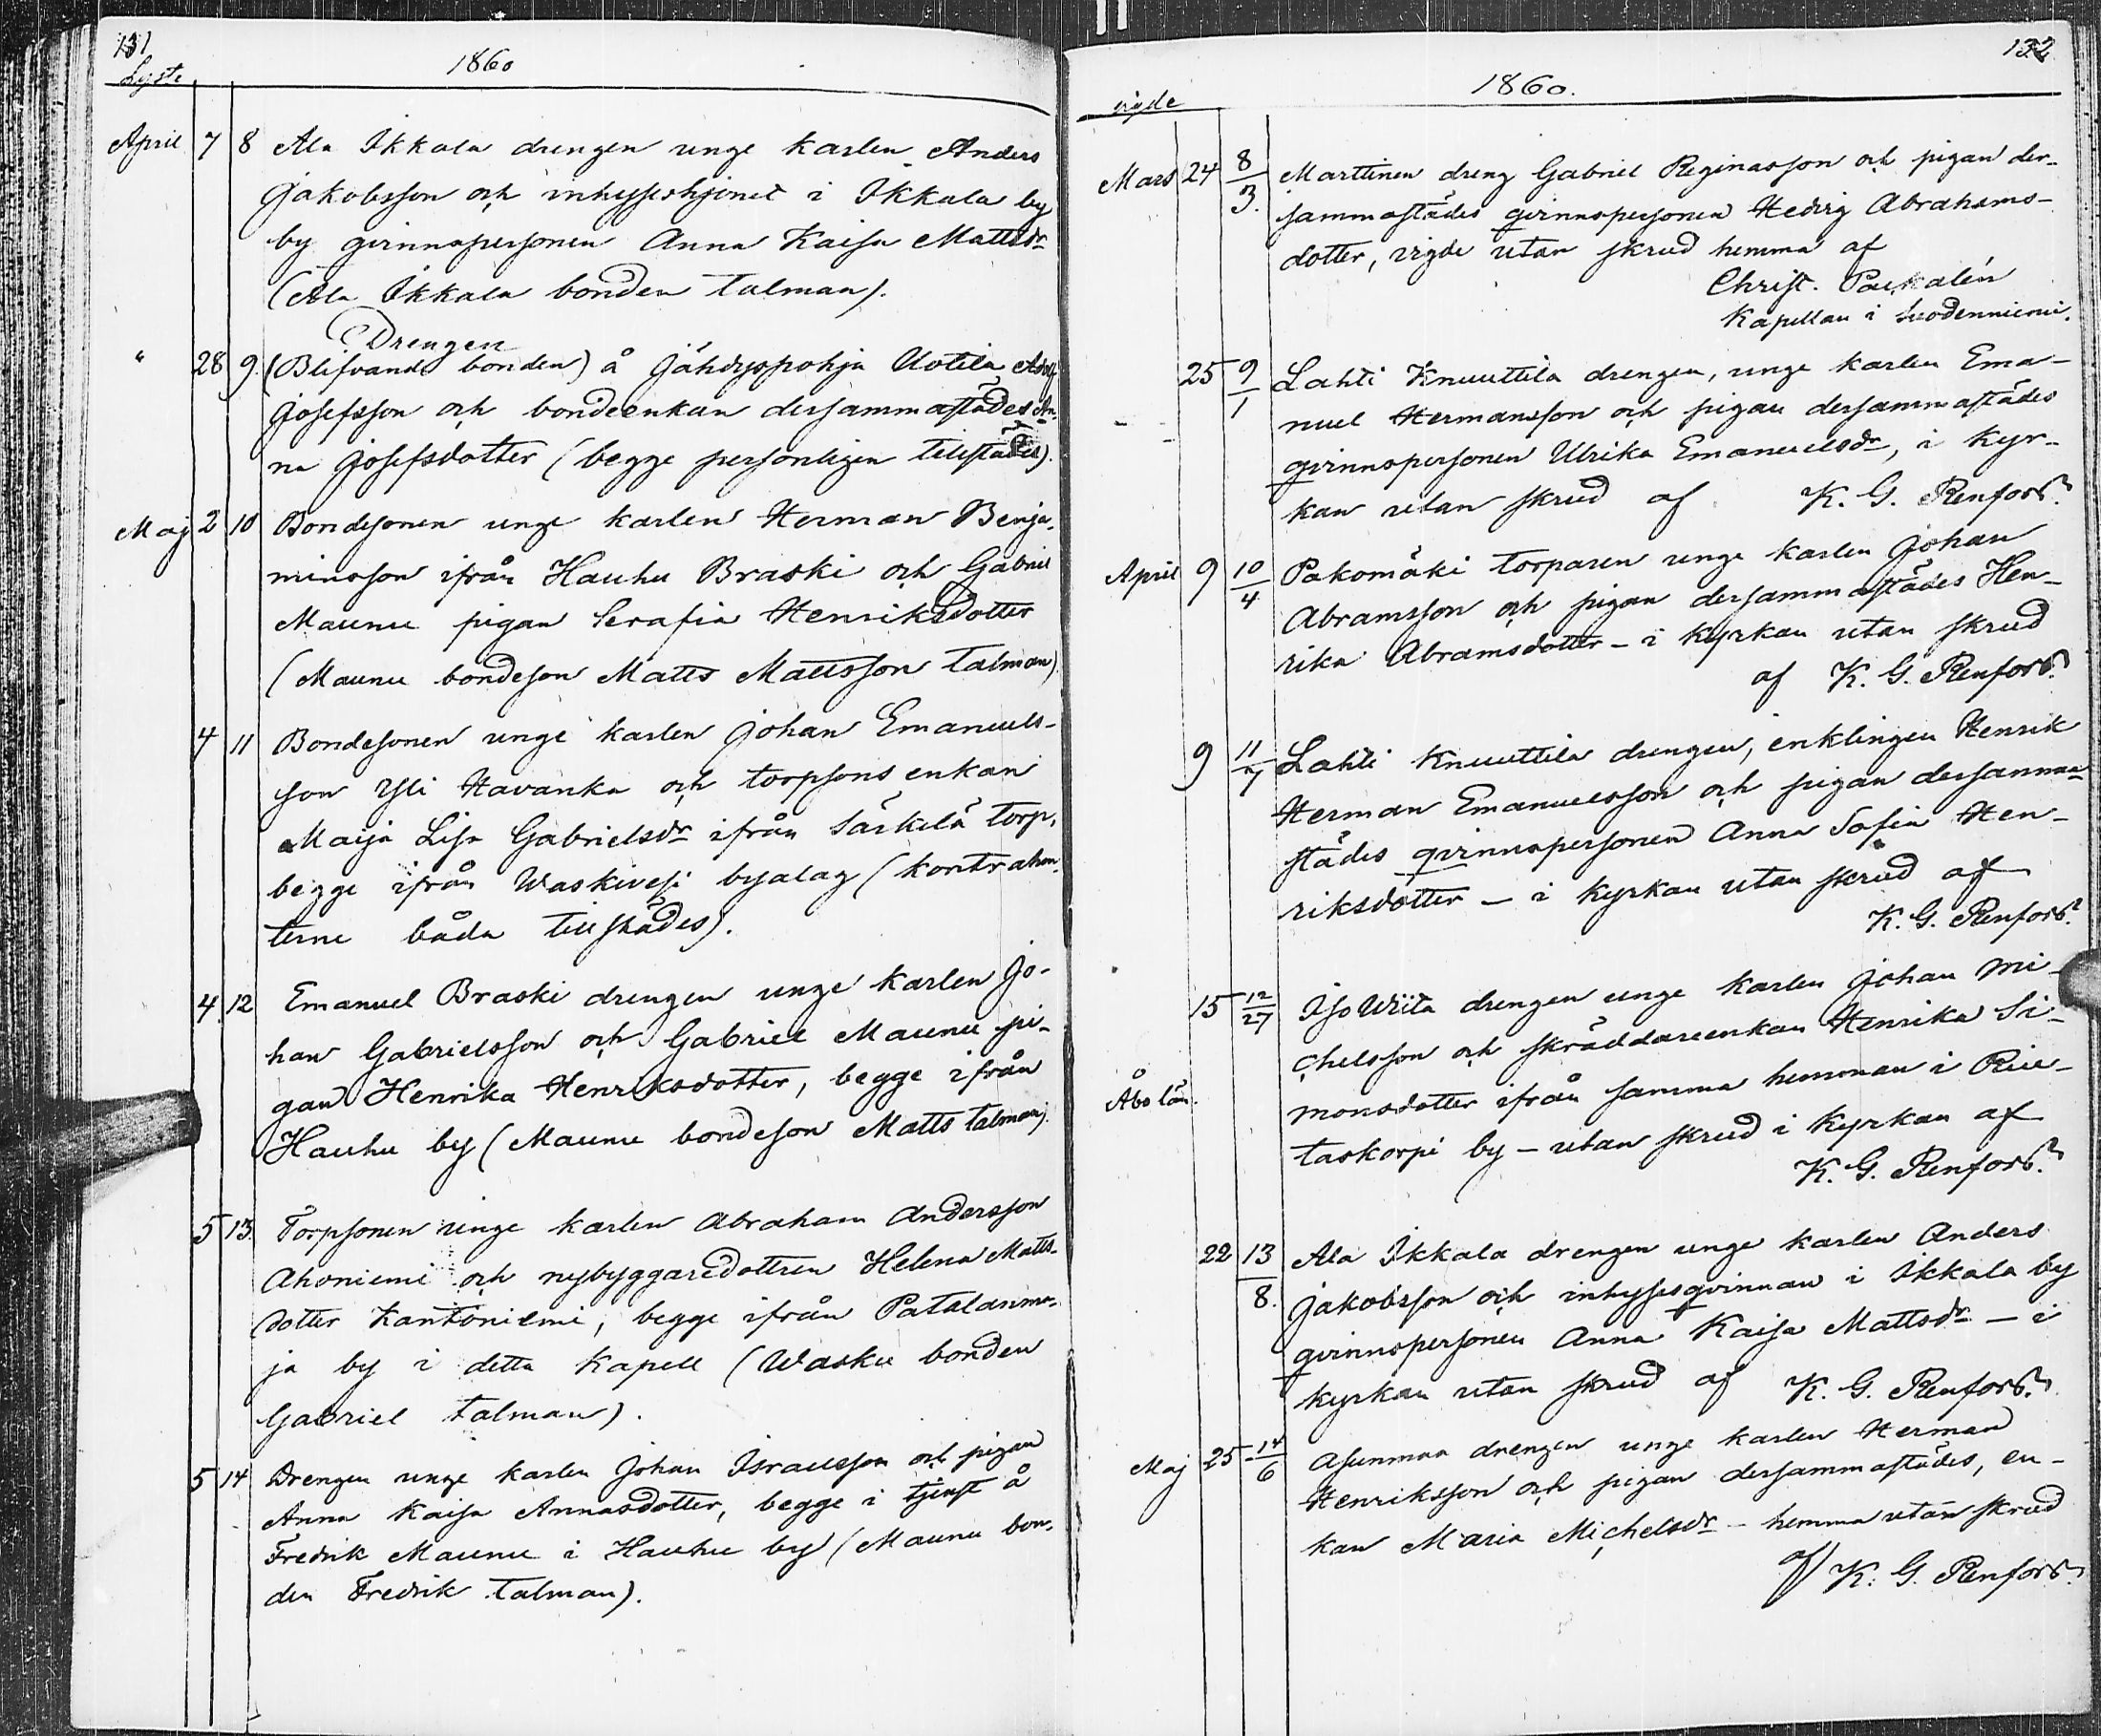 131
Lyste
1860
April 7 8 Ala Ikkala drengen unge karlen Anders
Jakobsson och inhysehjonet i Ikkala by
by qvinnspersonen Anna Kaisa Mattsdr
(Ala Ikkala bonden talman).
Drengen
" 28 9. (Blifvande bonden) å Jähdyspohja Uotila
Josefsson och bondeenkan dersammastädes An-
na Josefsdotter (begge personligen tillstädes).
Maj 2 10 Bondesonen unge karlen Herman Benja-
minsson ifrån Hauhu Braski och Gabriel
Maunu pigan Serafia Henriksdotter
(Maunu bondeson Matts Mattsson talman)
4 11 Bondesonen unge karlen Johan Emanuels-
son Yli Havanka och torpsons enkan
Maija Lisa Gabrielsdr ifrån Särkelä torp,
begge ifrån Waskivesi byalag (kontrahen-
terne båda tillstädes).
4. 12 Emanuel Braski drengen unge karlen Jo-
han Gabrielsson och Gabriel Maunu pi-
gan Henrika Henriksdotter, begge ifrån
Hauhu by (Maunu bondeson Matts talman).
5 13. Torpsonen unge karlen Abraham Andersson
Ahoniemi och nybyggaredottren Helena Matts-
dotter Kantoniemi, begge ifrån Patalanma-
ja by i detta Kapell (Wasku bonden
Gabriel talman).
5 14 Drengen unge karlen Johan Israelsson och pigan
Anna Kaisa Annasdotter, begge i tjenst å
Fredrik Maunu i Hauhu by (Maunu bon-
den Fredrik talman).
132
vigde
1860.
Mars 24 8/3. Marttinen dreng Gabriel Reginasson och pigan der-
sammastädes qvinnspersonen Hedvig Abrahams-
dotter, vigde utan skrud hemma af
Christ. Paukalén
Kapellan i Suodenniemi.
25 9/1 Lahti Knuuttila drengen, unge karlen Ema-
nuel Hermansson och pigan dersammastädes
qvinnspersonen Ulrika Emanuelsdr, i Kyr-
kan utan skrud af K. G. Renfors.
April 9 10/4 Pakomäki torparen unge karlen Johan
Abramsson och pigan dersammastädes Hen-
rika Abramsdotter - i kyrkan utan skrud
af K. G. Renfors.
9 11/7 Lahti Knuuttila drengen, enklingen Henrik
Herman Emanuelsson och pigan dersamma-
städes qvinnspersonen Anna Sofia Hen-
riksdotter - i kyrkan utan skrud af
K. G. Renfors.
15 12/27 Iso Wiita drengen unge karlen Johan Mi-
chelsson och skräddareenkan Henrika Si-
Åbo län.
monsdotter ifrån samma hemman i Rie-
taskorpi by - utan skrud i kyrkan af
K. G. Renfors.
22 13/8. Ala Ikkala drengen unge karlen Anders
Jakobsson och inhysesqvinnan i Ikkala by
qvinnspersonen Anna Kaisa Mattsdr - i
kyrkan utan skrud af K. G. Renfors.
Maj 25 14/6 Asunmaa drengen unge karlen Herman
Henriksson och pigan dersammastädes, en-
kan Maria Michelsdr - hemma utan skrud
af K. G. Renfors.